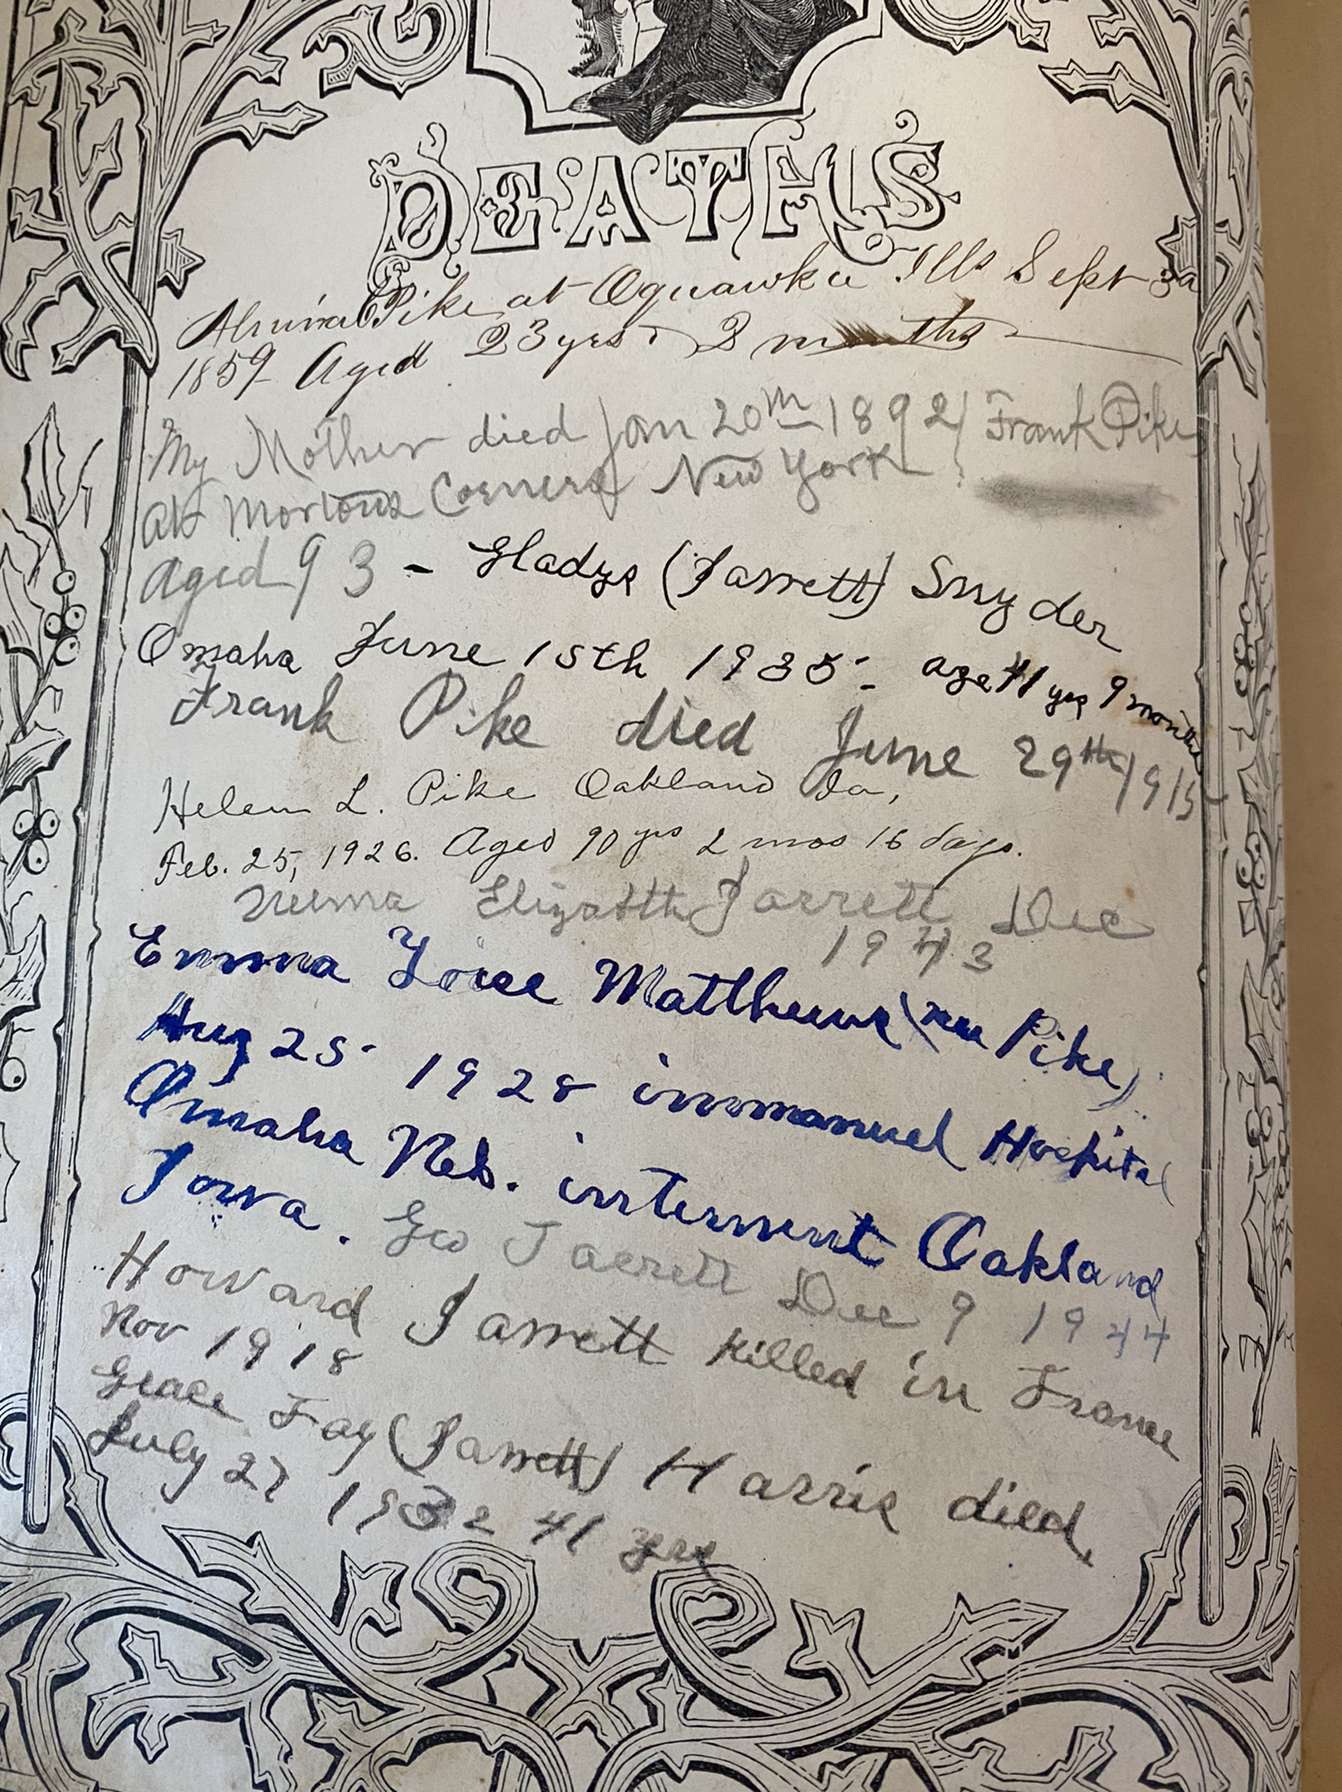 DEATHS
Almira Pike at Oquawka Ills Sept
1859 Aged 23 yrs 2 months
My Mother died Jan 20th 1892 Frank Pike
at Mortons Corners New York
aged 93 - Gladys (Jarrett) Snyder
Omaha June 15th 1935 - age 41 yrs 9 months
Frank Pike died June 29th 1915
Helen L. Pike Oakland Ia,
Feb. 25, 1926. Aged 90 yrs 2 mos 16 days.
Elizabeth Jarrett Dec
1943
Emma Loise Matthews (nee Pike)
Aug 25 - 1928 immanuel Hospital
Omaha Neb. interment Oakland
Iowa. Geo Jarrett Dec 9 1944
Howard Jarrett killed in France
Nov 1918
Grace Fay (Jarrett) Harris died,
July 27 1932 41 yrs